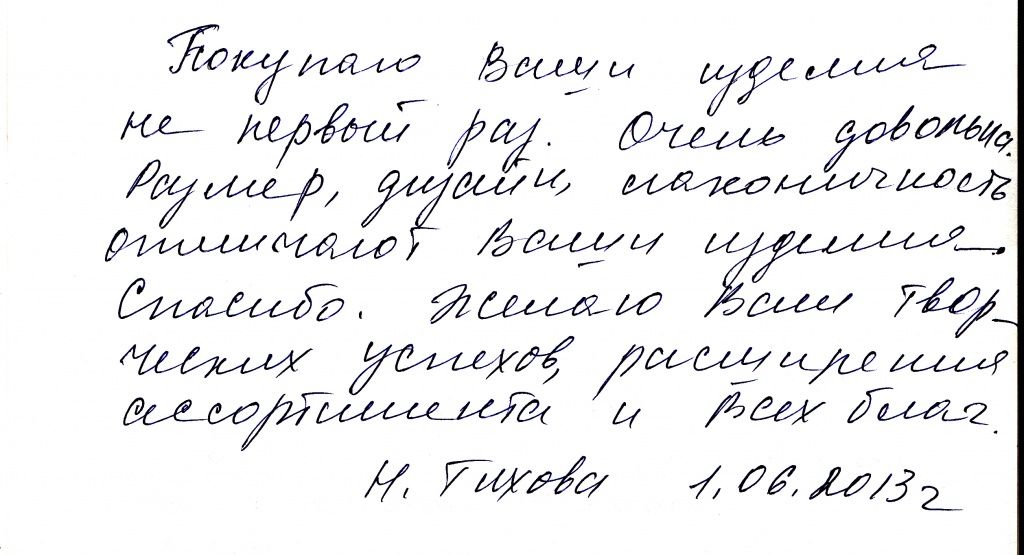 Покупаю Ваши изделия
не первый раз. Очень довольна.
Размер, дизайн, лаконичность
отличают Ваши изделия.
Спасибо. Желаю Вам твор-
ческих успехов, расширения
ассортимента и всех благ.
Н. Тихова 1.06.2013г